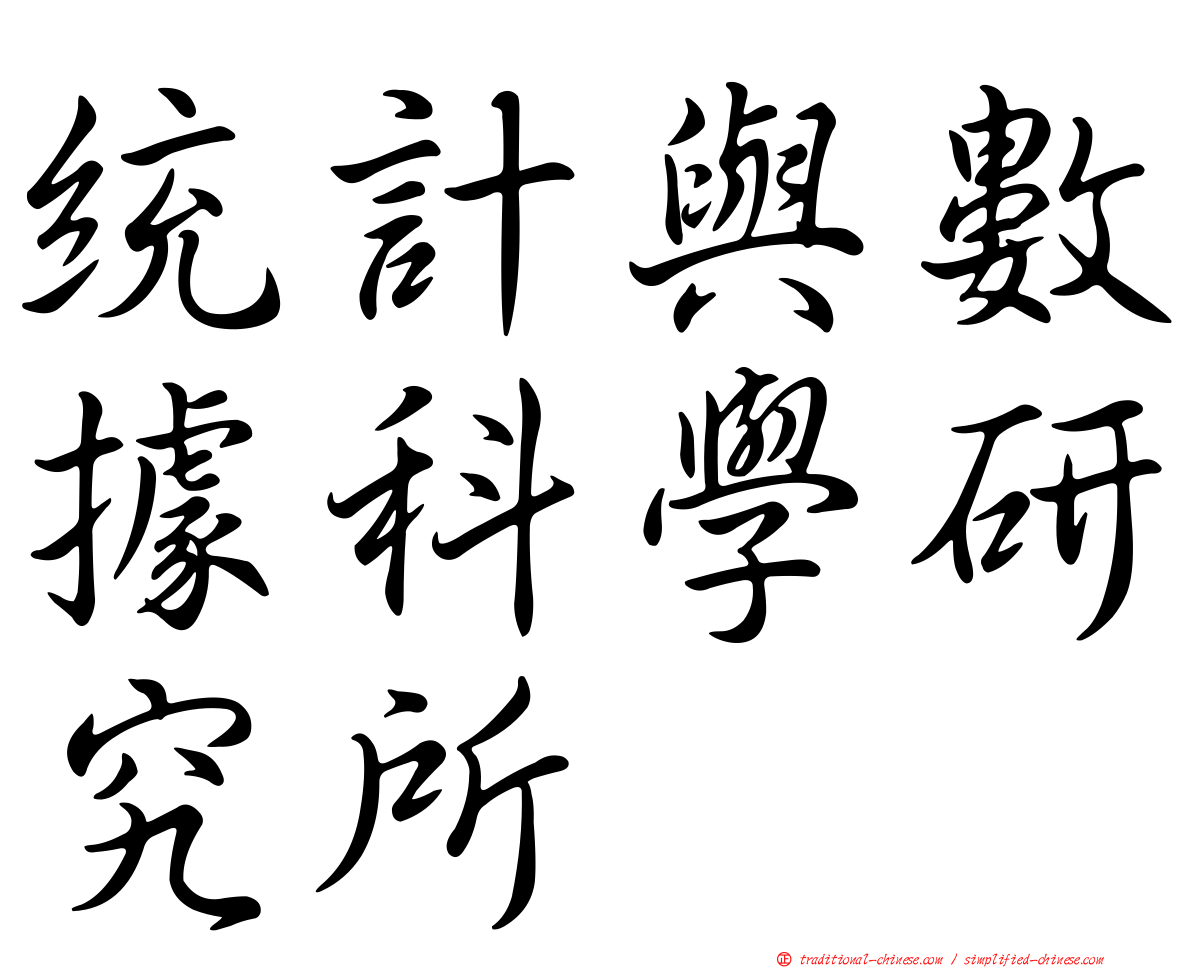 統計與數
據科學研
究所
正 traditional-chinese.com / simplified-chinese.com